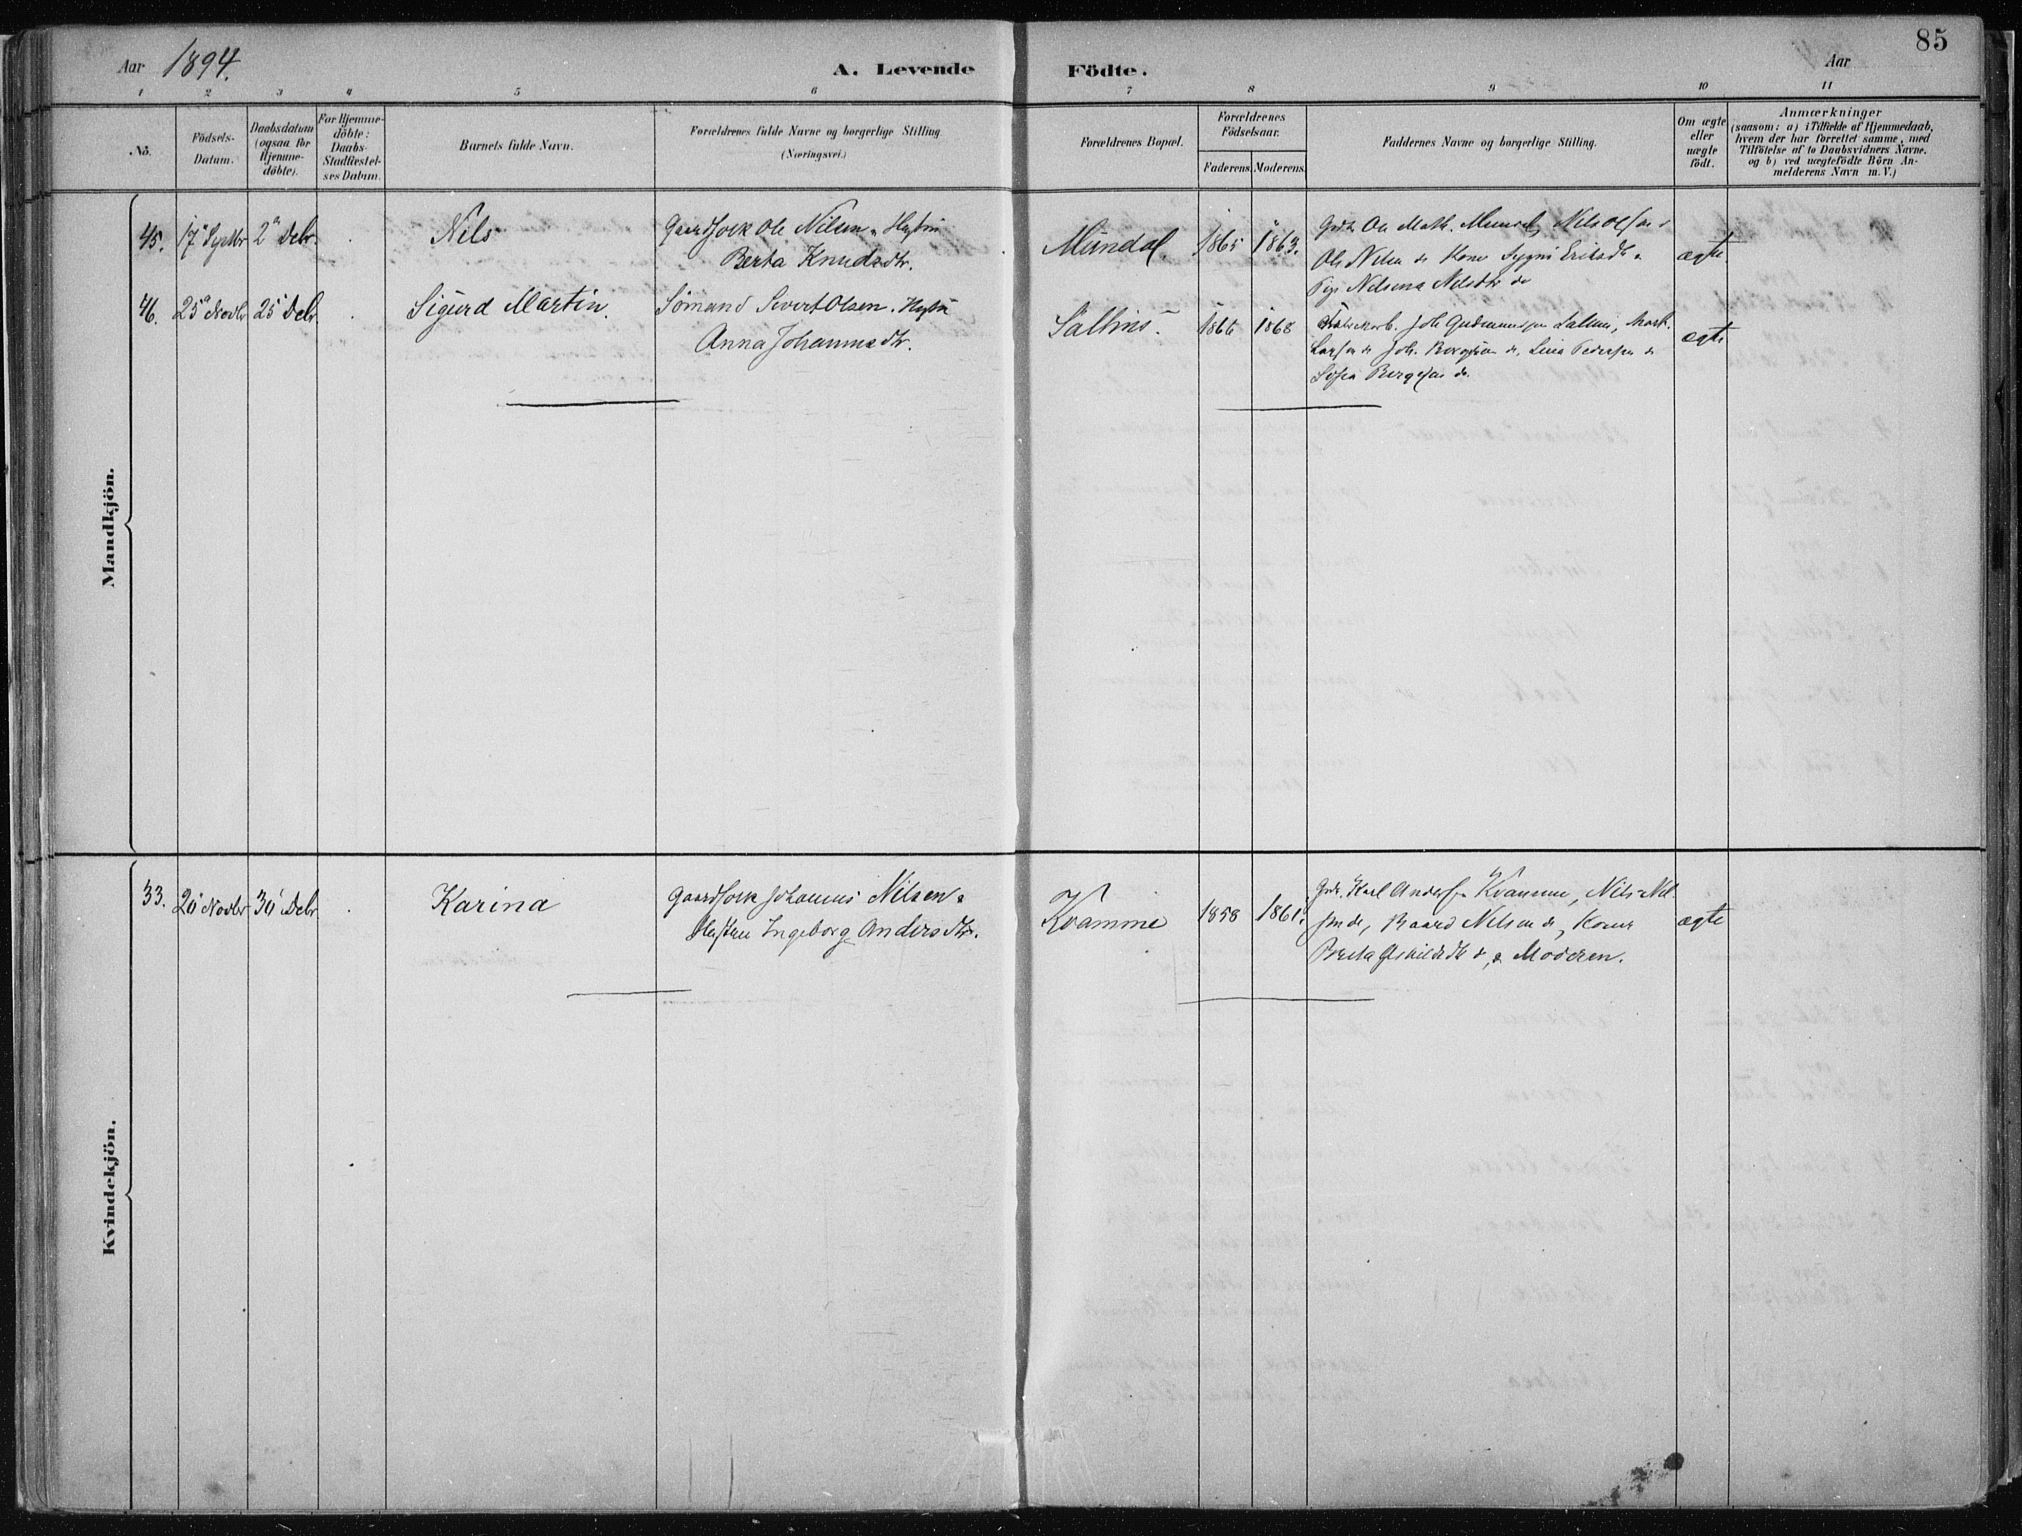 Aar 1894.
A. Levende Födte.
Aar
85
1 2 3 4 5 6 7 8 9 10 11
No.
Födsels-
Datum.
Daabsdatum
(ogsaa for
Hjemme-
döbte).
For Hjemme-
döbte:
Daabs-
Stadfæstel-
ses Datum.
Barnets fulde Navn.
Forældrenes fulde Navne og borgerlige Stilling
(Næringsvei.)
Forældrenes Bopæl.
Forældrenes
Födselsaar.
Faderens. Moderens.
Faddernes Navne og borgerlige Stilling.
Om ægte
eller
uægte
födt.
Anmærkninger
(saasom: a) i Tilfælde af Hjemmedaab,
hvem der har forrettet samme, med
Tilföielse af to Daabsvidners Navne.
og b) ved uægtefödte Börn An-
melderens Navn m. V.)
Mandkjön.
45. 17de Septbr 2den Debr. Nels Gaardfolk Ole Nilsen Hustru
Berta Knudsdtr.
Mundal. 1865 1863. Grdr. Ole Math. Mundal, Nils Olsen
Ole Nilsen do Kone Sygni Eriksdtr
Pige Nelsena Nelsdtr do
ægte
46. 25de Novbr 25de Debr. Sigurd Martin. Sømand Sivert Olsen. Hustru
Anna Johannesdtr.
1866 1868 Joh. Gudmundsen
Larsen do Joh. do, Lina Pedersen do
Sofia Bergesen do.
ægte
Kvindekjön.
33. 20de Novbr 30te Debr Karina Gaardfolk Johannes Nilsen
Hustru Ingeborg Andersdtr.
Kvamme 1858 1861. Grdr. Karl Andersen Kvamme, Nils Nil-
sen do, Baard Nelsen do, Kone
Brita do, Moderen.
ægte